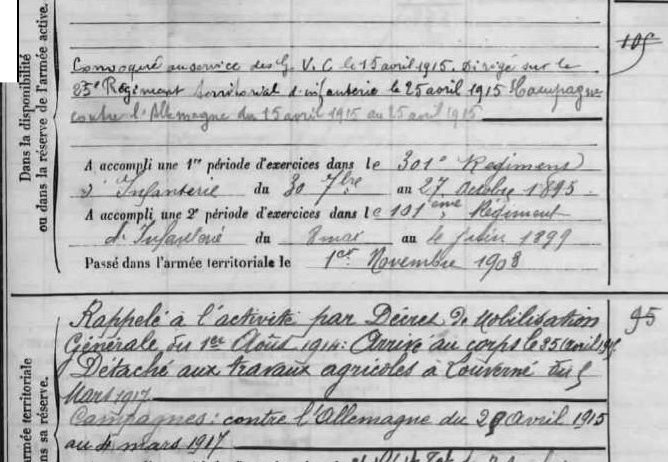 Dans la disponibilité
ou dans la réserve de l'armée active.
105
Convoqué au service des G. V. C. le 15 avril 1915. Dirigé sur le
25e Régiment territorial d'infanterie le 25 avril 1915 Campagne
contre l'Allemagne du 15 avril 1915 au 25 avril 1915
A accompli une 1re période d'exercices dans le 301e Régiment
d'Infanterie du 30 7bre au 27 Octobre 1895.
A accompli une 2e période d'exercices dans le 101ème Régiment
d'Infanterie du 8 mai au 4 Juin 1899
Passé dans l'armée territoriale le 1er Novembre 1908
95
armée territoriale
ns sa réserve.
Rappelé à l'activité par Décret de Mobilisation
Générale du 1er Août 1914. Arrivé au corps le 25 avril 1915
Détaché aux travaux agricoles à Louverné du 5
Mars 1917
Campagnes: contre l'Allemagne du 29 Avril 1915
au 4 mars 1917